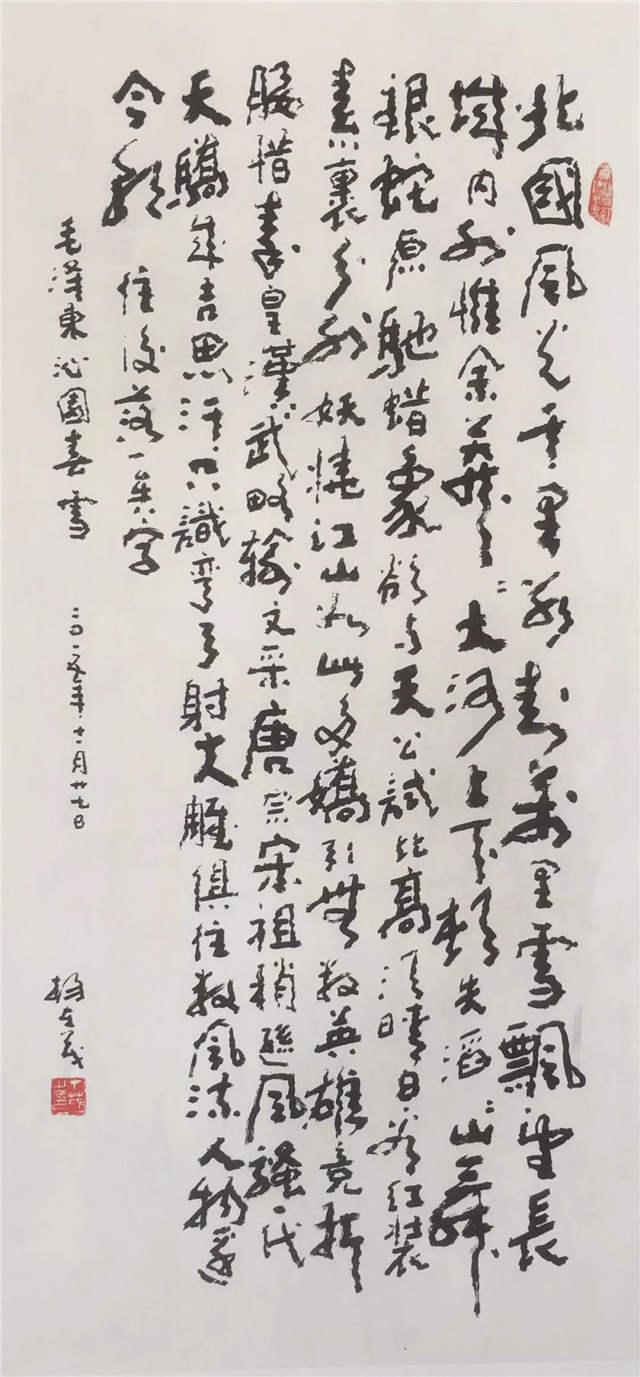 北國風光千里冰封萬里雪飄望長
城内外惟余莽々大河上下頓失滔々山舞
銀蛇原馳蜡象欲与天公試比高須晴日看红装
素裹分外妖嬈江山如此多嬌引無數英雄竞折
腰惜秦皇漢武略輸文采唐宗宋祖稍遜風騷一代
天驕成吉思汗只識彎弓射大雕俱往數風流人物還
今朝 往後落一矣字
毛澤東沁園春雪 二〇一五年十一月